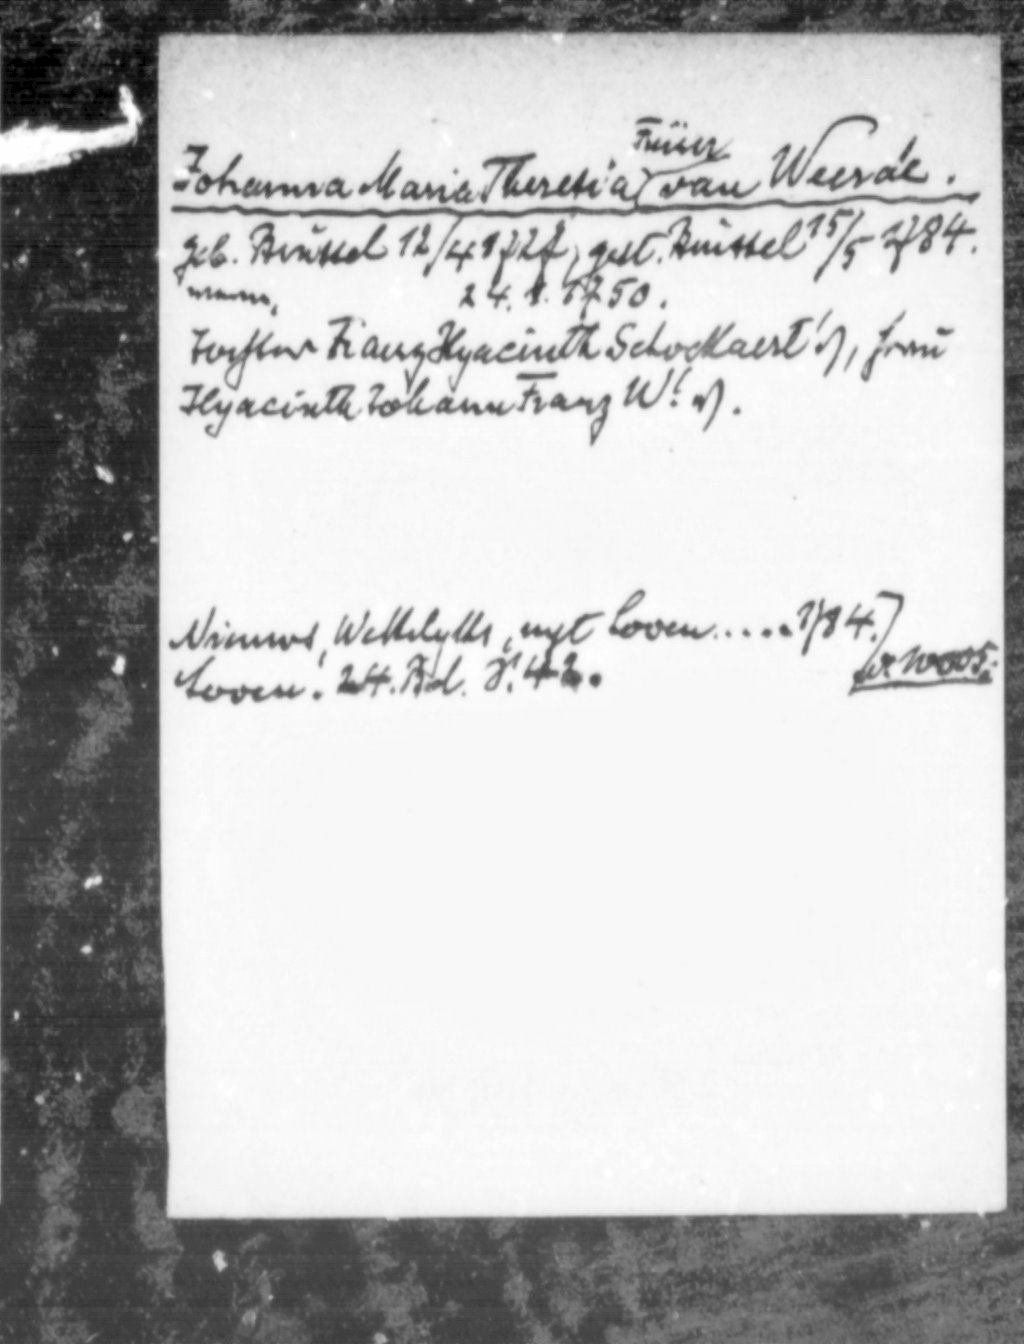 Johanna Maria Theresia van Weerde.
geb. Brüssel 12/4 1727, gest. Brüssel 15/5 1784.
24. 1. 1750.
Tochter Franz Hyacinth Schockaert's, Frau
Hyacinth Johann Franz W's.
Nieuws, Wekkelyks, uyt Loven.....1784.
Loven. 24. Bd. S. 42.